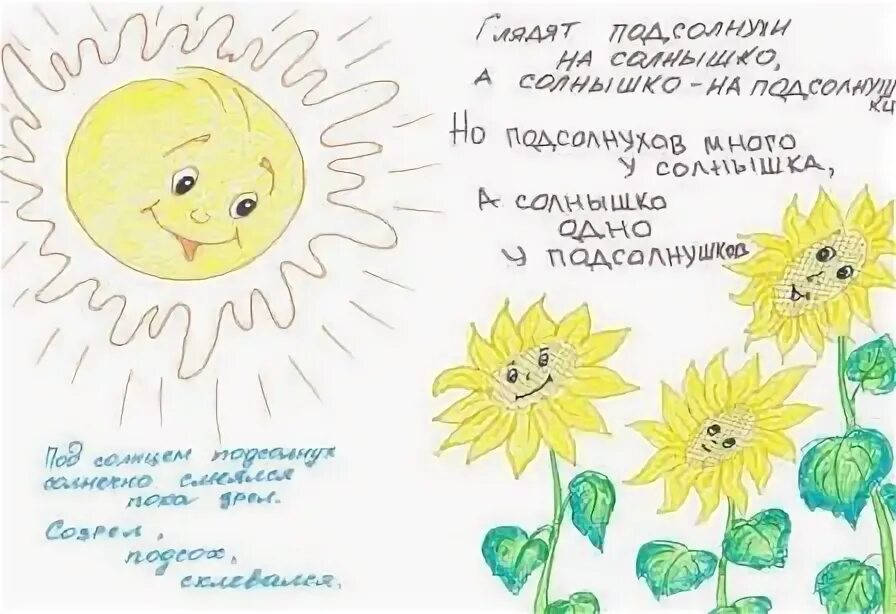 Глядят подсолнухи
на солнышко,
А солнышко - на подсолнуш
ки
Но подсолнухов много
у солнышка,
А солнышко
одно
у подсолнушков
Под солнцем подсолнух
солнечно смеялся
пока зрел.
Созрел,
подсох,
склевался.